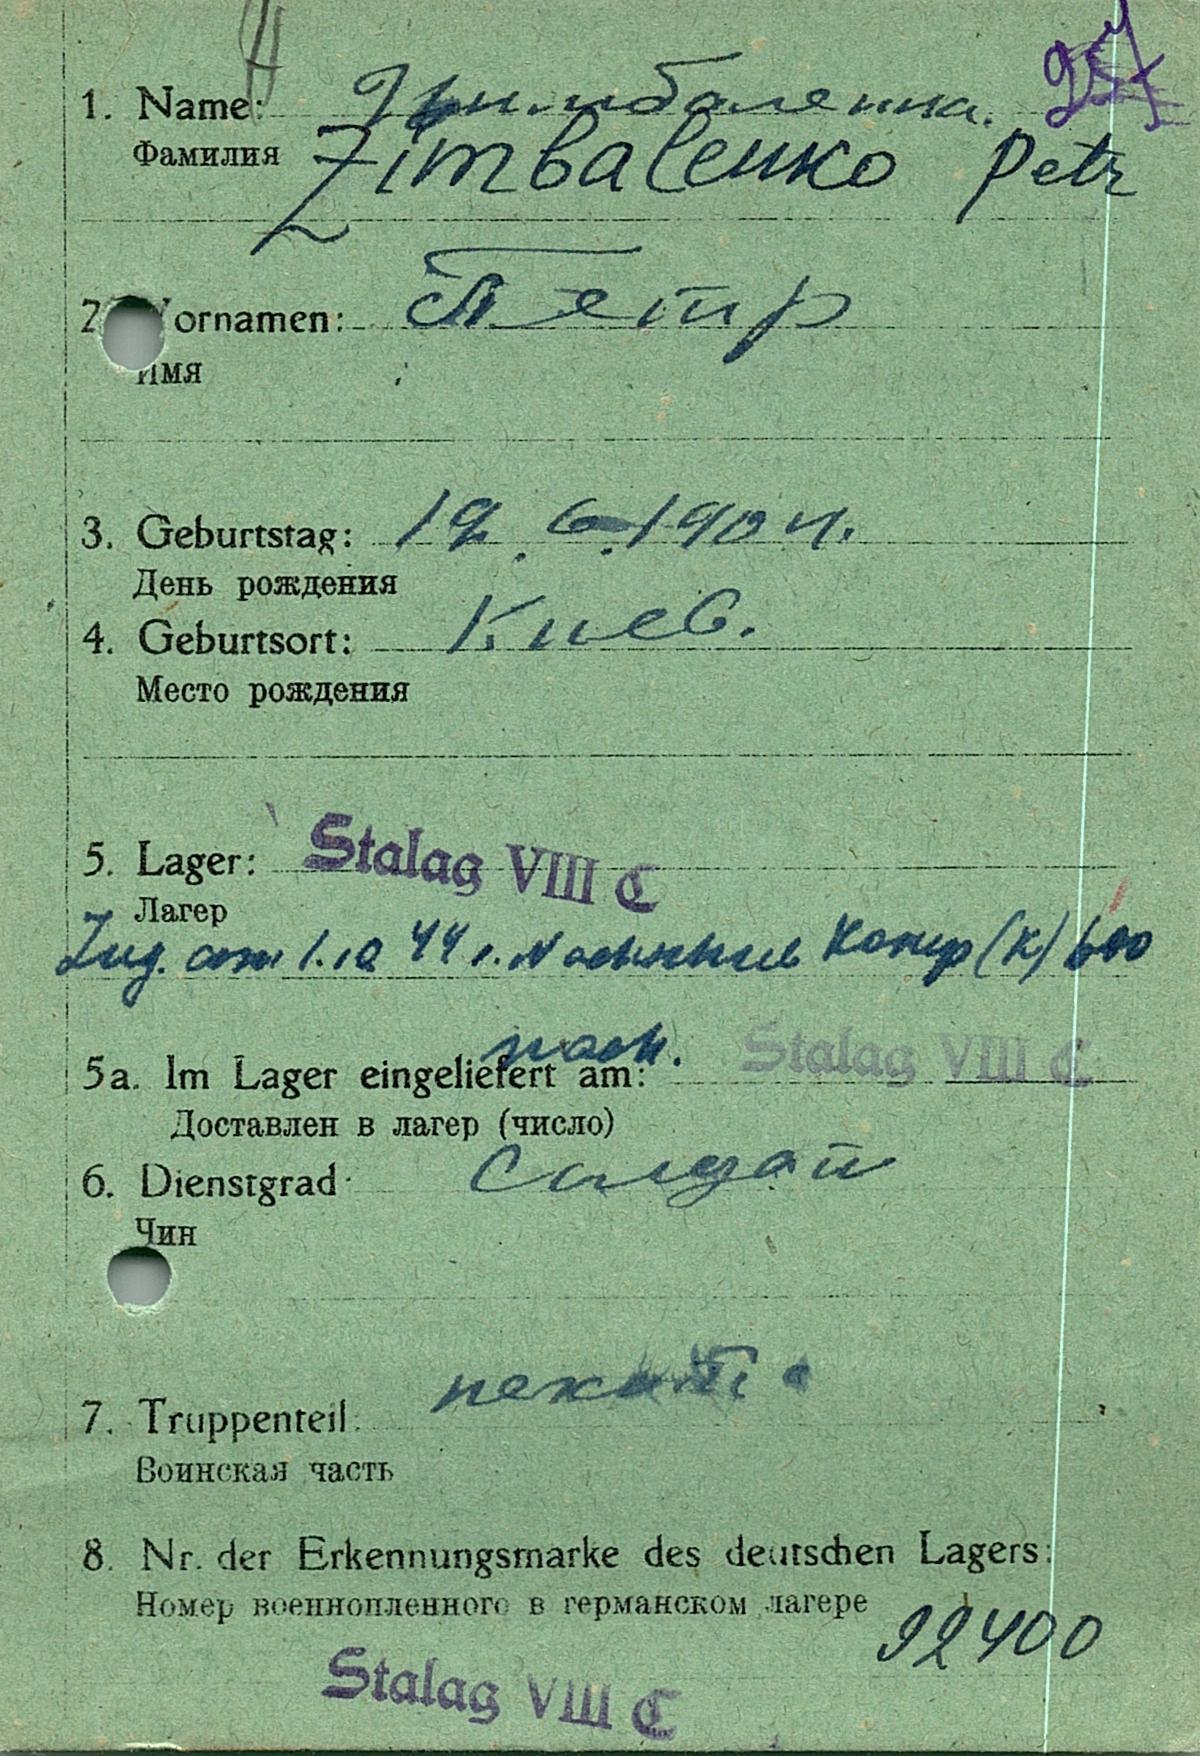 1. Name:
Фамилия
Zimbalenko Petr
2. Vornamen:
Петр
Имя
3. Geburtstag: 12.6.1904.
День рождения
4. Geburtsort: Киев.
Место рождения
5. Lager: Stalag VIII C
Лагер
1.10 44 г.
5a. Im Lager eingeliefert am: Stalag VIII C
Доставлен в лагер (число)
6. Dienstgrad Солдат
Чин
7. Truppenteil:
Воинская часть
8. Nr. der Erkennungsmarke des deutschen Lagers:
Номер военнопленного в германском лагере
92400
Stalag VIII C